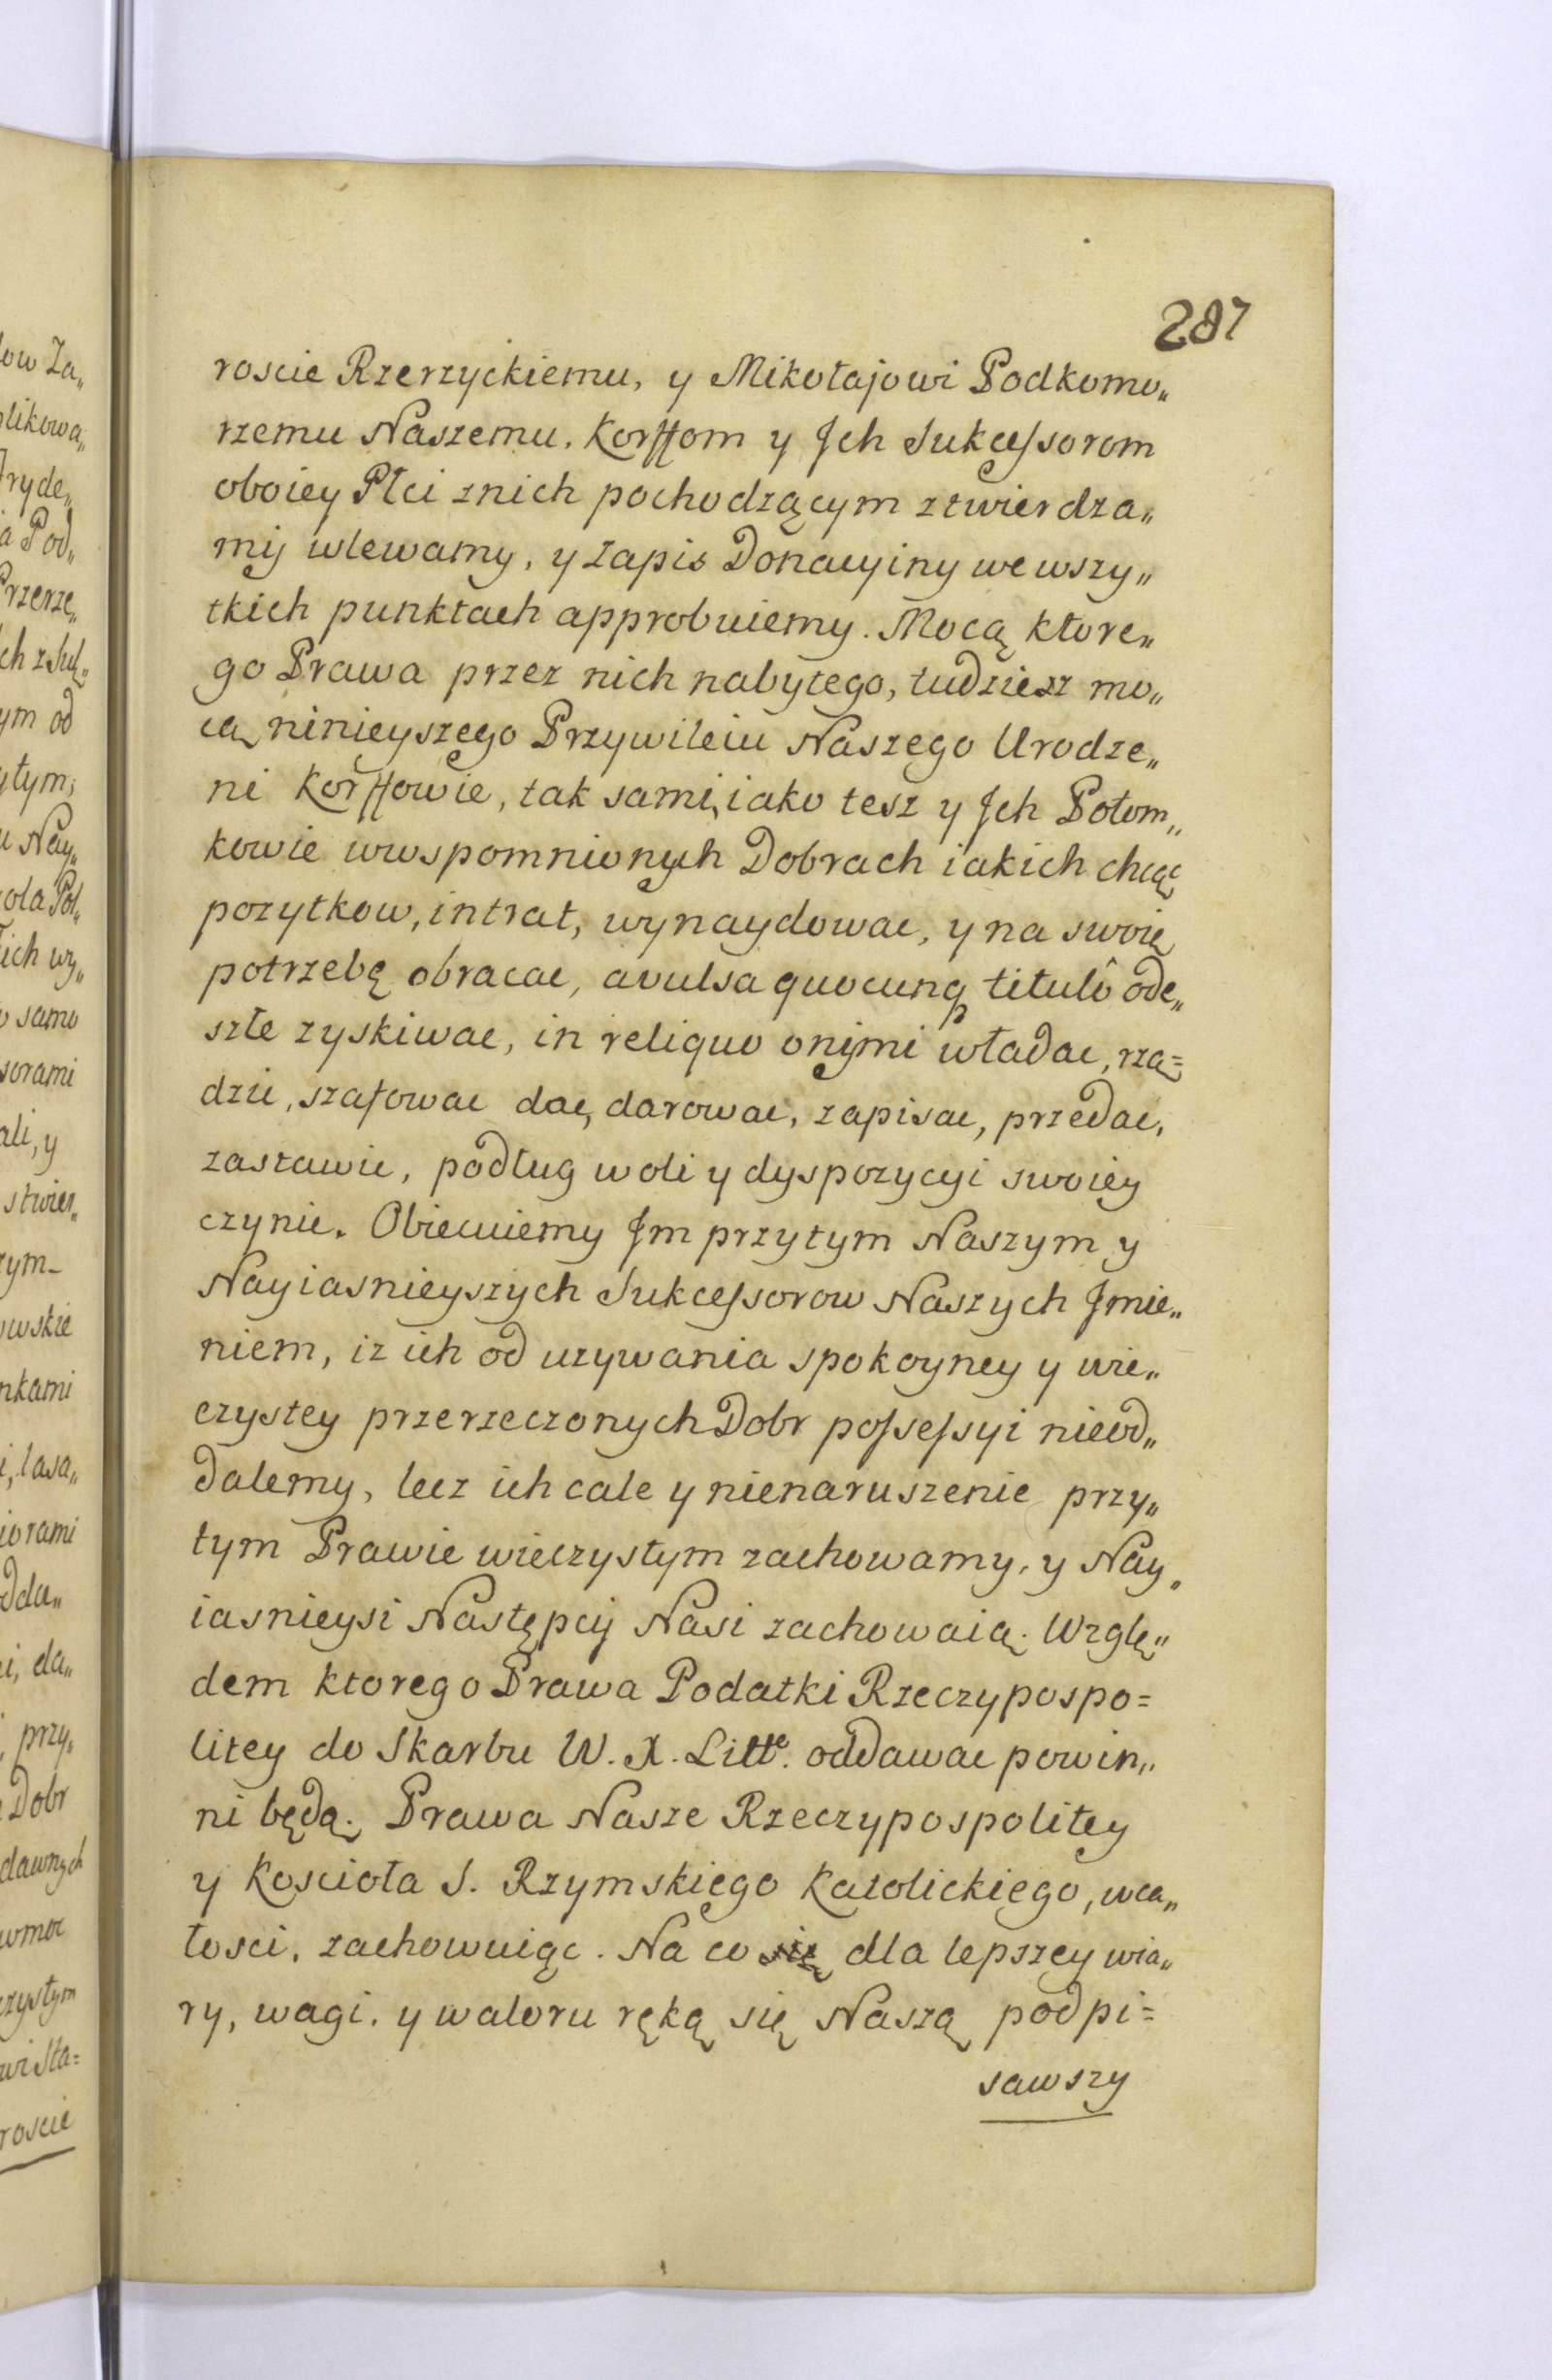 287
roscie Rzerzyckiemu, y Mikołajowi Podkomo„
rzemu Naszemu. Korffom y Jch Sukcessorom
oboiey Płci znich pochodzącym ztwierdza„
mÿ wlewamy, y Zapis Donacyiny we wszy„
tkich punktach approbuiemy. Mocą ktore„
go Prawa przez nich nabytego, tudziesz mo„
cą ninieyszego Przywileiu Naszego Urodze„
ni Korffowie, tak sami, iako tesz y Jch Potom„
kowie wwspomnionych Dobrach iakich chcąc
pozytkow, intrat, wynaydowac, y na swoię
potrzebę obracac, avulsa quocunq titulô ode„
szłe zyskiwac, in reliquo onÿmi władac, rzą=
dzic, szafowac dac, darowac, zapisac, przedac,
zastawic, podług woli y dyspozycyi swoiey
czynic. Obiecuiemy Jm przytym Naszym y
Nayiasnieyszych Sukcessorow Naszych Jmie„
niem, iz ich od uzywania spokoyney y wie„
czystey przerzeczonych Dobr possessyi nieod„
dalemy, lecz ich cale y nienaruszenie przy„
tym Prawie wieczystym zachowamy, y Nay„
iasnieysi Następcÿ Nasi zachowaią. Wzglę„
dem ktorego Prawa Podatki Rzeczypospo=
litey do Skarbu W. X. Litte. oddawac powin„
ni będą. Prawa Nasze Rzeczypospolitey
y Koscioła S. Rzymskiego Katolickiego, wca„
łosci, zachowuiąc. Na co się dla lepszey wia„
ry, wagi, y waloru ręką się Naszą podpi=
sawszy
ow Za„
likowa„
ryde„
a Pod„
Przerze„
ch z Suk„
ym od
ytym,
u Nay„
ola Pol„
ich wy„
o samo
sorami
ali, y
stwier„
zym_
owskie
nkami
i, lasa„
iorami
dda„
i, da„
, przy„
Dobr
dawnych
wmoc
czystym
wi Sta=
roscie